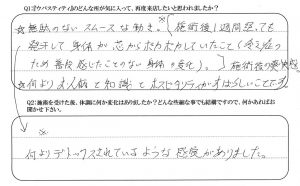 Q1:ゴウパスティティJのどんな所が気に入って、再度来店したいと思われましたか?
☆無駄のないスムーズな動き。
※施術後1週間経っても
発汗して身体が芯からポカポカしていたこと(冷え性の
ため普段感じたことのない身体の変化)。施術後の爽快感
☆何よりお人柄と知識とホスピタリティがすばらしいことです。
Q2:施術を受けた後、体調に何か変化はありましたか?どんな些細な事でも結構ですので、何かあればお
聞かせ下さい。
※
何よりデトックスされているような感覚がありました。